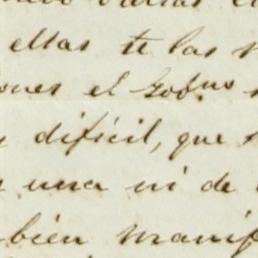 ellas te las
el Gob.no
difícil, que
una ni de
bién manif